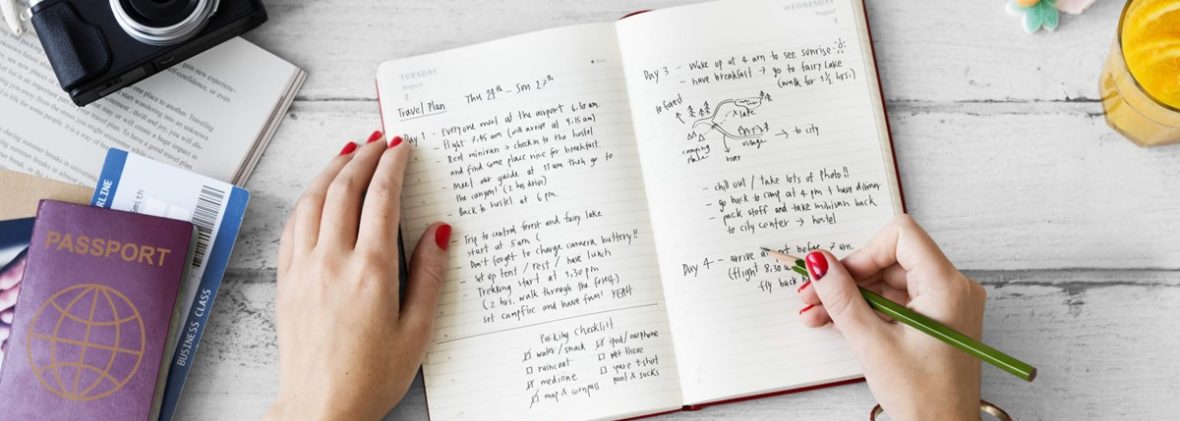 new experience,
or even
one place to another. Traveling
start wandering into an unknown
and joy, you will dis-
PASSPORT
BUSINESS CLASS
TUESDAY
August
2
Travel Plan Thu 24th - Sun 27th
Day 1 - Everyone meet at the airport 6.30 am.
- Flight 7.45 am (will arrive at 9.15 am)
- Rent minivan > checkin to the hostel
and find some place nice for breakfast.
- Meet our guide at 11 am then go to
the canyon! (2 hrs drive)
- Back to hostel at 6 pm.
- Trip to central forest and fairy lake
start at 5 am (
- Don't forget to charge camera battery!!
- Set up tent / rest / have lunch
- Trekking start at 1.30 pm
(2 hrs. walk through the forest)
set campfire and have fun! YEAH
Packing Checklist
water/snack ipod/earphone
raincoat wet tissue
medicine spare t-shirt
map & compass pant & socks
WEDNESDAY
August
3
Day 3 - Wake up at 4 am to see sunrise!
- have breakfast → go to fairy lake
(walk for 1½ hrs.)
to forest
lake
→ to city
camping place river village
- chill out / take lots of photo!!
- go back to camp at 4 pm & have dinner
- pack stuff and take minivan back
to city center → hostel
Day 4 - arrive at before 7 am.
(flight 8.30
fly back